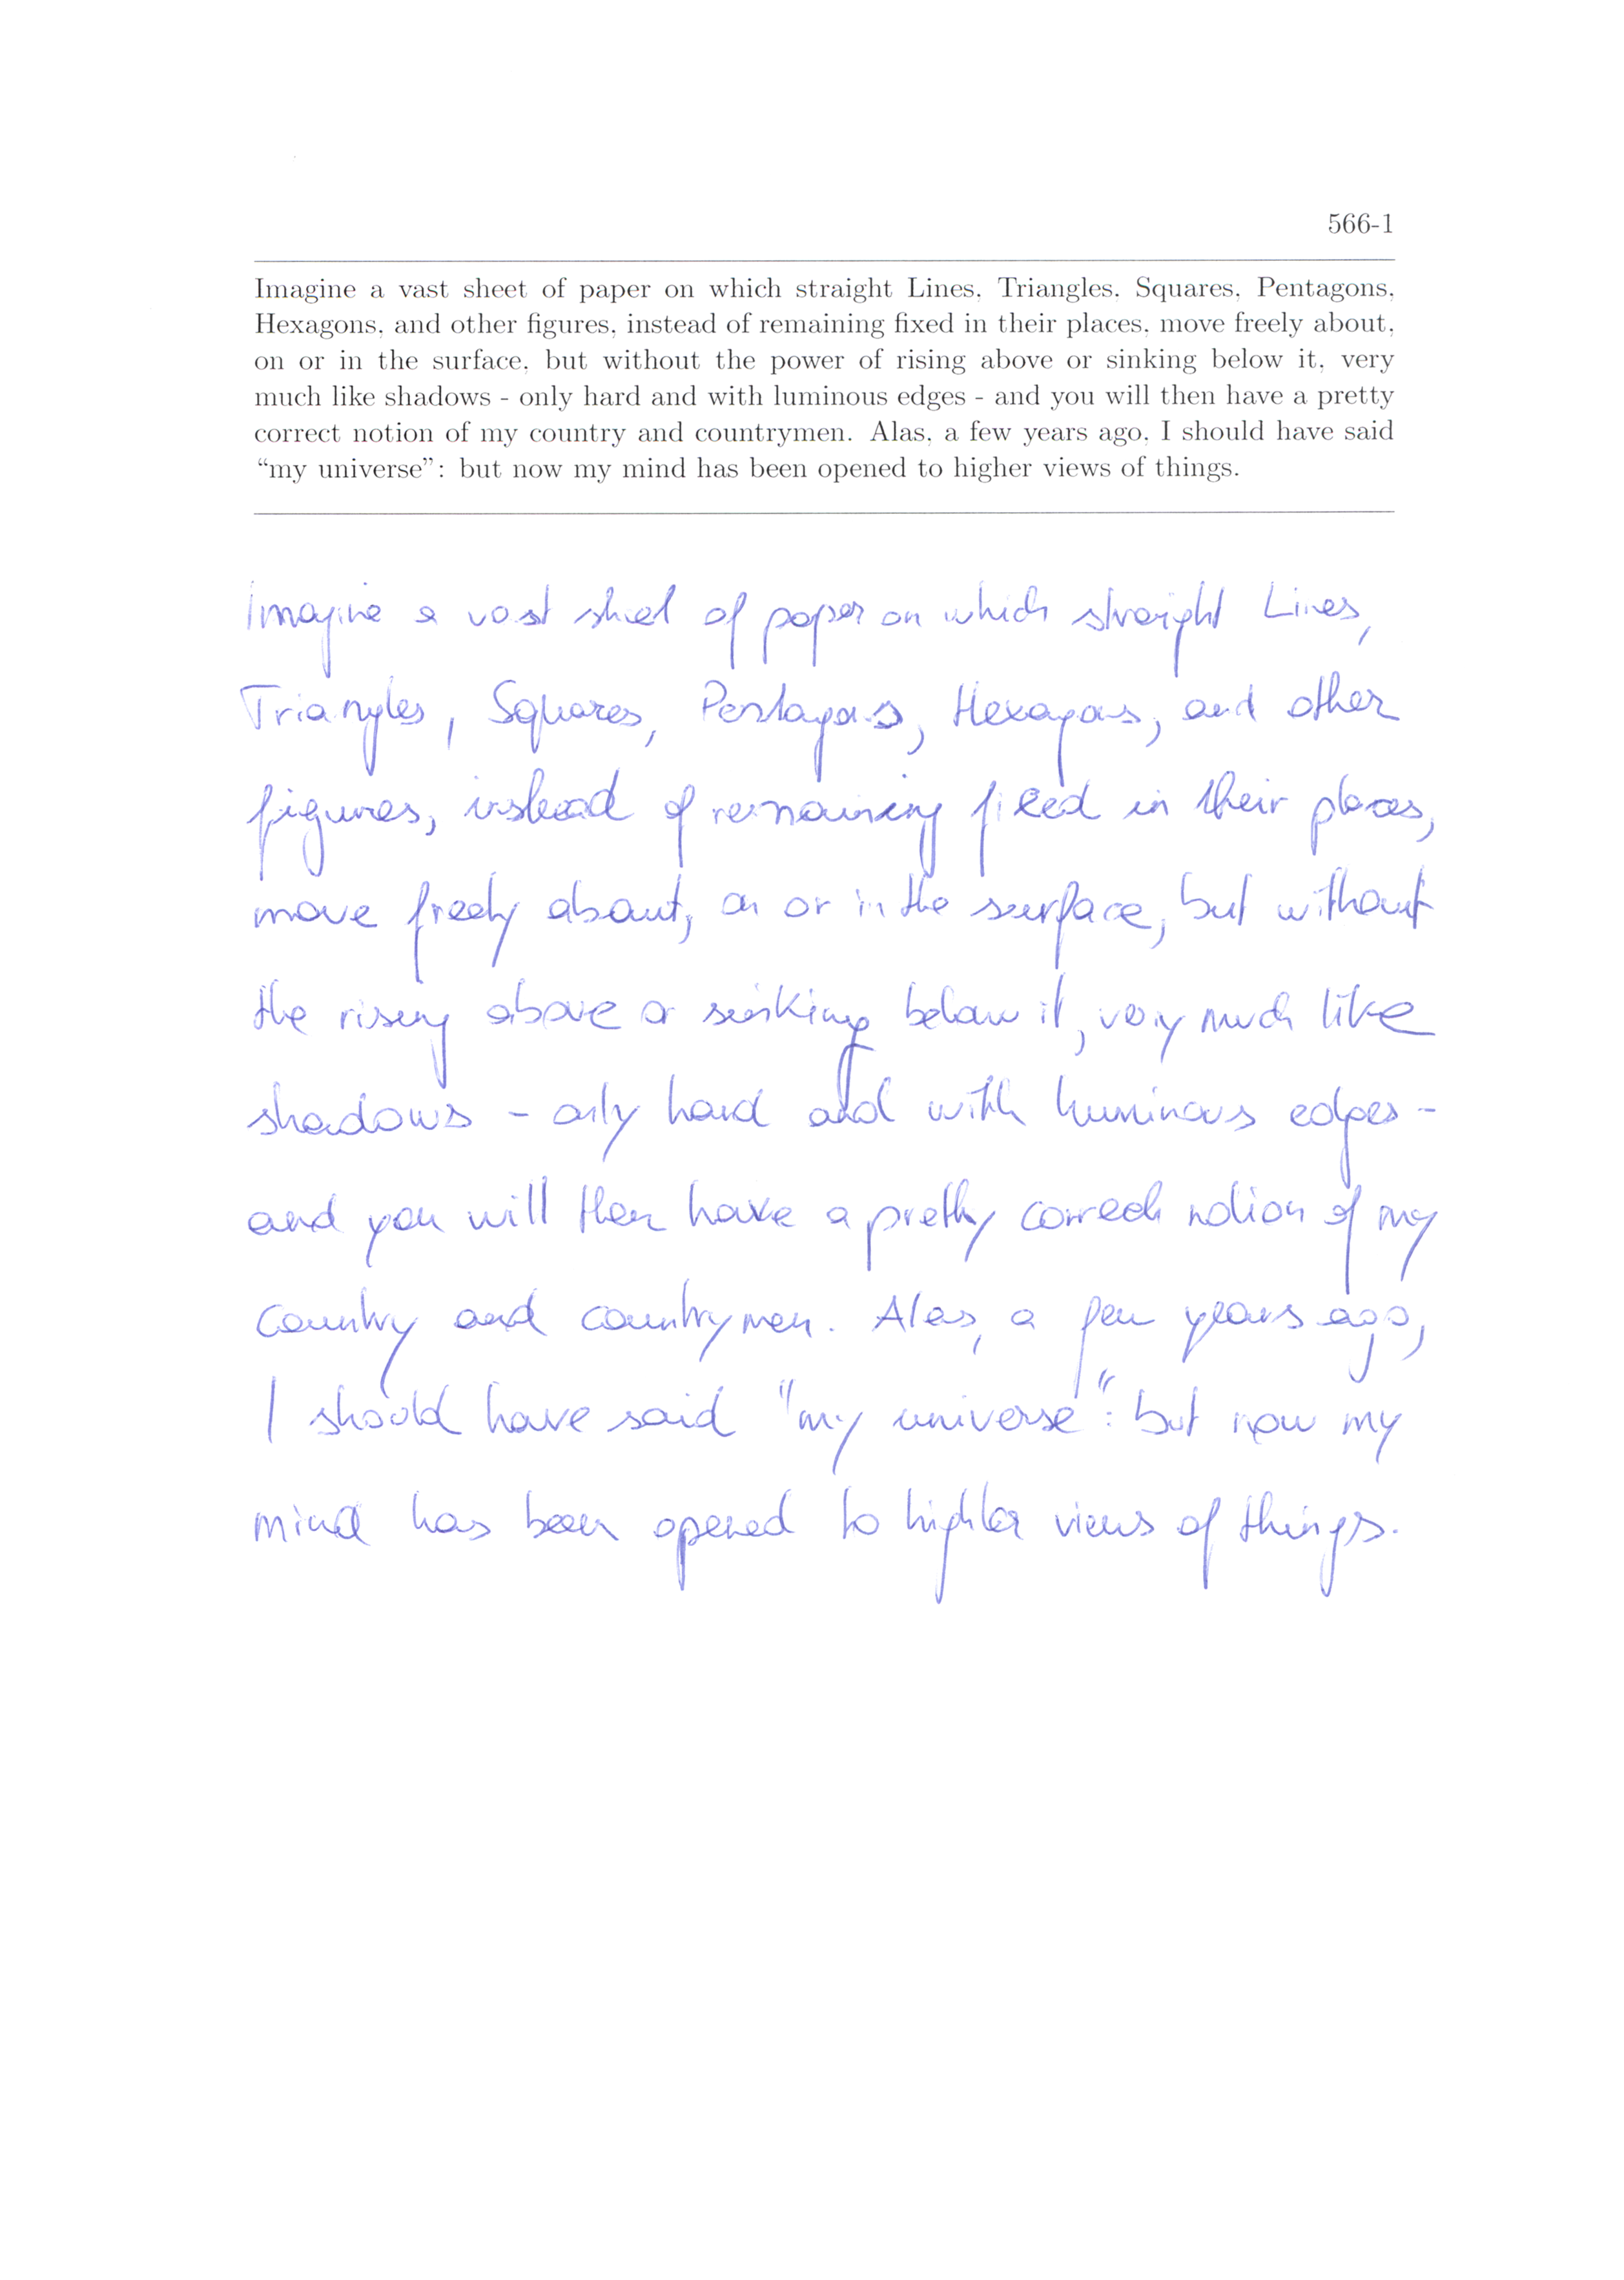 566-1
Imagine a vast sheet of paper on which straight Lines, Triangles, Squares, Pentagons,
Hexagons, and other figures, instead of remaining fixed in their places, move freely about,
on or in the surface, but without the power of rising above or sinking below it, very
much like shadows - only hard and with luminous edges - and you will then have a pretty
correct notion of my country and countrymen. Alas, a few years ago, I should have said
“my universe”: but now my mind has been opened to higher views of things.
Imagine a vast sheet of paper on which straight Lines,
Triangles, Squares, Pentagons, Hexagons, and other
figures, instead of remaining fixed in their places,
move freely about, on or in the surface, but without
the rising above or sinking below it, very much like
shadows - only hard and with luminous edges -
and you will then have a pretty correct notion of my
country and countrymen. Alas, a few years ago,
I should have said "my universe": but now my
mind has been opened to higher views of things.